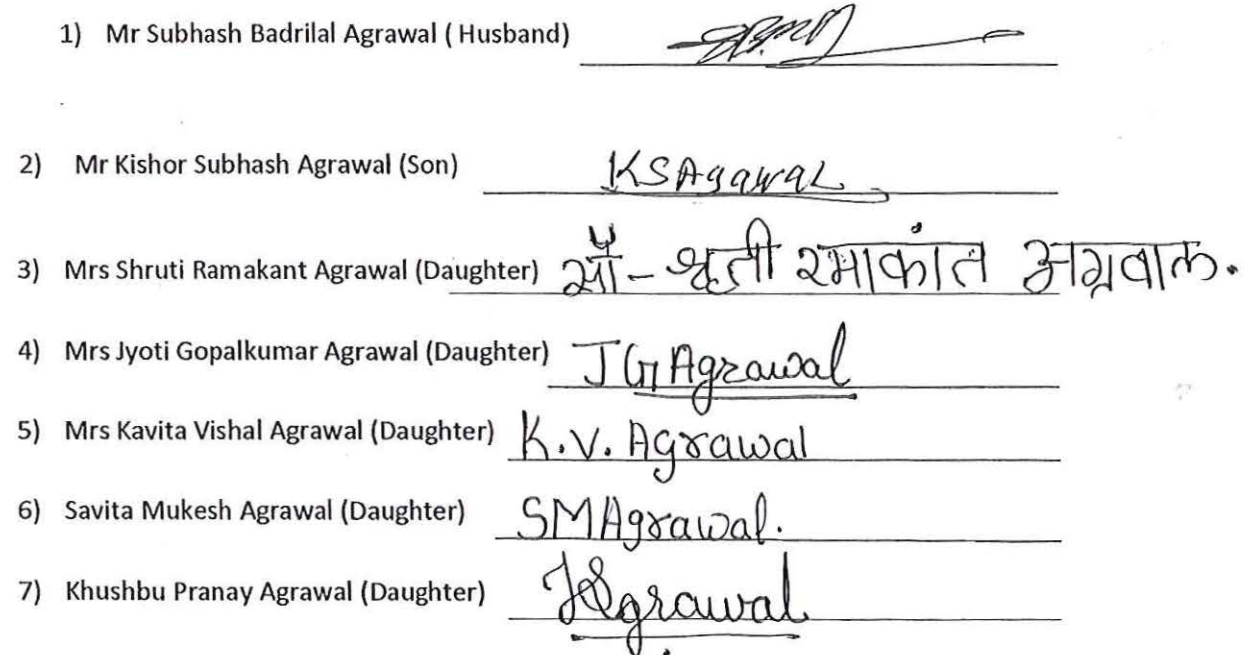 1) Mr Subhash Badrilal Agrawal ( Husband)
2) Mr Kishor Subhash Agrawal (Son) KSAgawal
3) Mrs Shruti Ramakant Agrawal (Daughter) सौ - श्रुती रमाकांत अग्रवाल.
4) Mrs Jyoti Gopalkumar Agrawal (Daughter) J G Agrawal
5) Mrs Kavita Vishal Agrawal (Daughter) K.V. Agrawal
6) Savita Mukesh Agrawal (Daughter) SMAgrawal.
7) Khushbu Pranay Agrawal (Daughter) KAgrawal